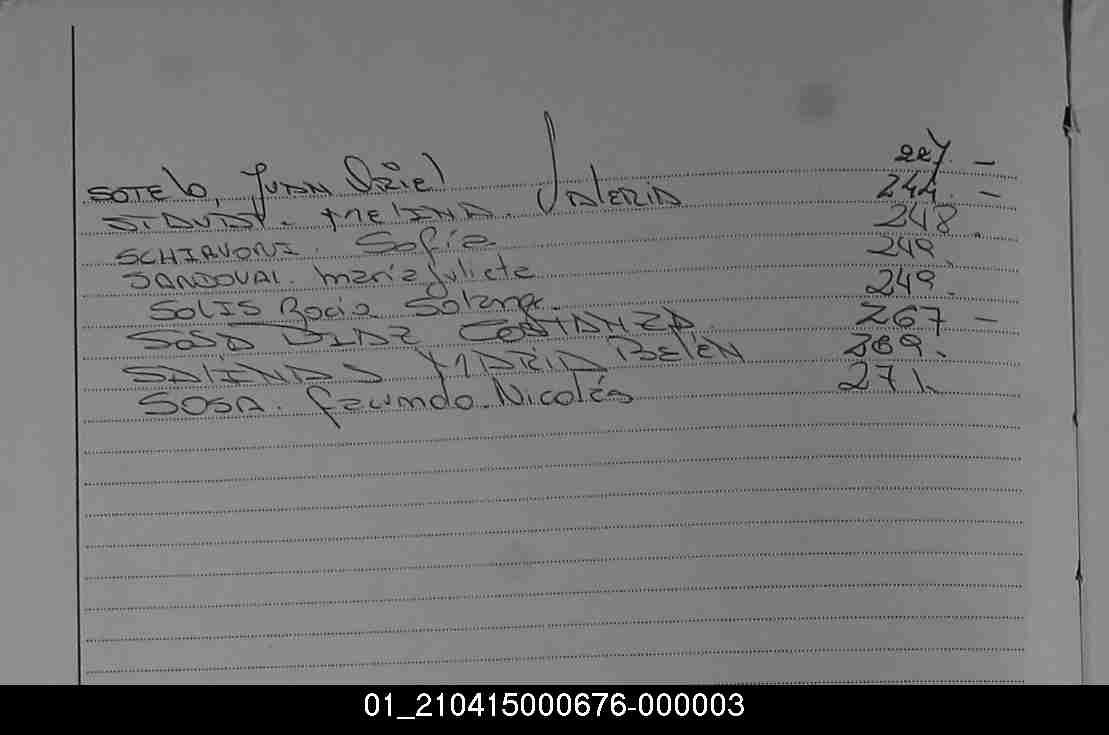 SOTElo, JUAN Oziel 227. -
MELINA. VALERIA 244. -
SCHIAVONI. Sofia 248.
SANDOVAL. maria Julieta 249.
SOLIS Rocio Solange. 249.
SOSA DIAZ COSTANZA. 267 -
SALINAS MARIA BELÉN 269.
SOSA. facundo. Nicolás 271.
01_210415000676-000003